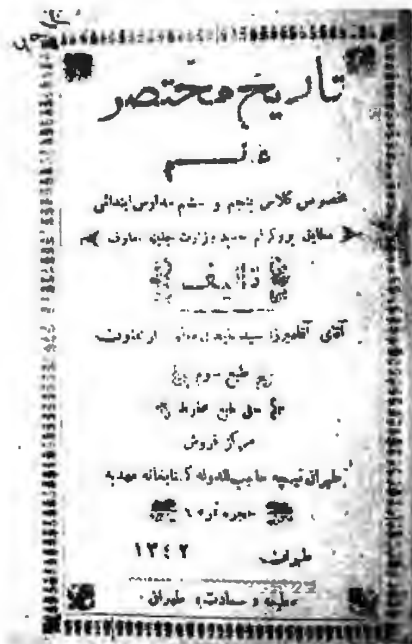 تاریخ مختصر
عالم
مخصوص کلاس پنجم و ششم مدارس ابتدائی
مطابق پروگرام جدید وزارت جلیله معارف
تألیف
آقای آقامیرزا سید
طبع سوم
حق طبع محفوظ
مرکز فروش
طهران تیمچه حاجب‌الدوله کتابخانه
حجره نمره
طهران
۱۳٤۲
مطبعه سعادت طهران